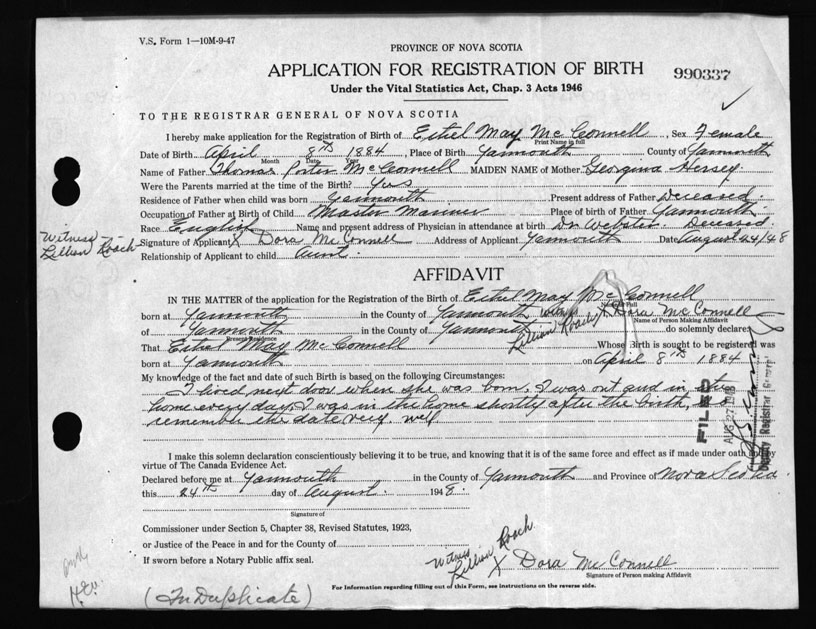 V.S. Form 1—10M-9-47
PROVINCE OF NOVA SCOTIA
APPLICATION FOR REGISTRATION OF BIRTH
990337
Under the Vital Statistics Act, Chap. 3 Acts 1946
TO THE REGISTRAR GENERAL OF NOVA SCOTIA
I hereby make application for the Registration of Birth of Ethel May McConnell, Sex Female
Print Name in full
Date of Birth April 8th 1884, Place of Birth Yarmouth County of Yarmouth
Month Date Year
Name of Father Thomas Porter McConnell MAIDEN NAME of Mother Georgina Hersey
Were the Parents married at the time of the Birth? Yes
Residence of Father when child was born Yarmouth Present address of Father Deceased.
Occupation of Father at Birth of Child Master Mariner Place of birth of Father Yarmouth
Race English Name and present address of Physician in attendance at birth Dr Webster. Deceased.
Witness
Lillian Roach
Signature of Applicant X Dora McConnell Address of Applicant Yarmouth Date August 24/48
Relationship of Applicant to child Aunt.
AFFIDAVIT
IN THE MATTER of the application for the Registration of the Birth of Ethel May McConnell
Name in Full
born at Yarmouth in the County of Yarmouth witness Lillian Roach X Dora McConnell
Name of Person Making Affidavit
of Yarmouth in the County of Yarmouth do solemnly declare:
Present Residence
That Ethel May McConnell Whose Birth is sought to be registered was
born at Yarmouth on April 8th 1884
My knowledge of the fact and date of such Birth is based on the following Circumstances:
I lived next door when she was born, I was out and in the
home every day, I was in the home shortly after the birth, so
remember the date very well.
FILED
AUG 27 1948
Deputy Registrar General
I make this solemn declaration conscientiously believing it to be true, and knowing that it is of the same force and effect as if made under oath by
virtue of The Canada Evidence Act.
Declared before me at Yarmouth in the County of Yarmouth and Province of Nova Scotia.
this 24th day of August 1948.
Signature of
Commissioner under Section 5, Chapter 38, Revised Statutes, 1923,
or Justice of the Peace in and for the County of
If sworn before a Notary Public affix seal.
Witness
Lillian Roach
X Dora McConnell
Signature of Person making Affidavit
For Information regarding filling out of this Form, see instructions on the reverse side.
(In Duplicate)